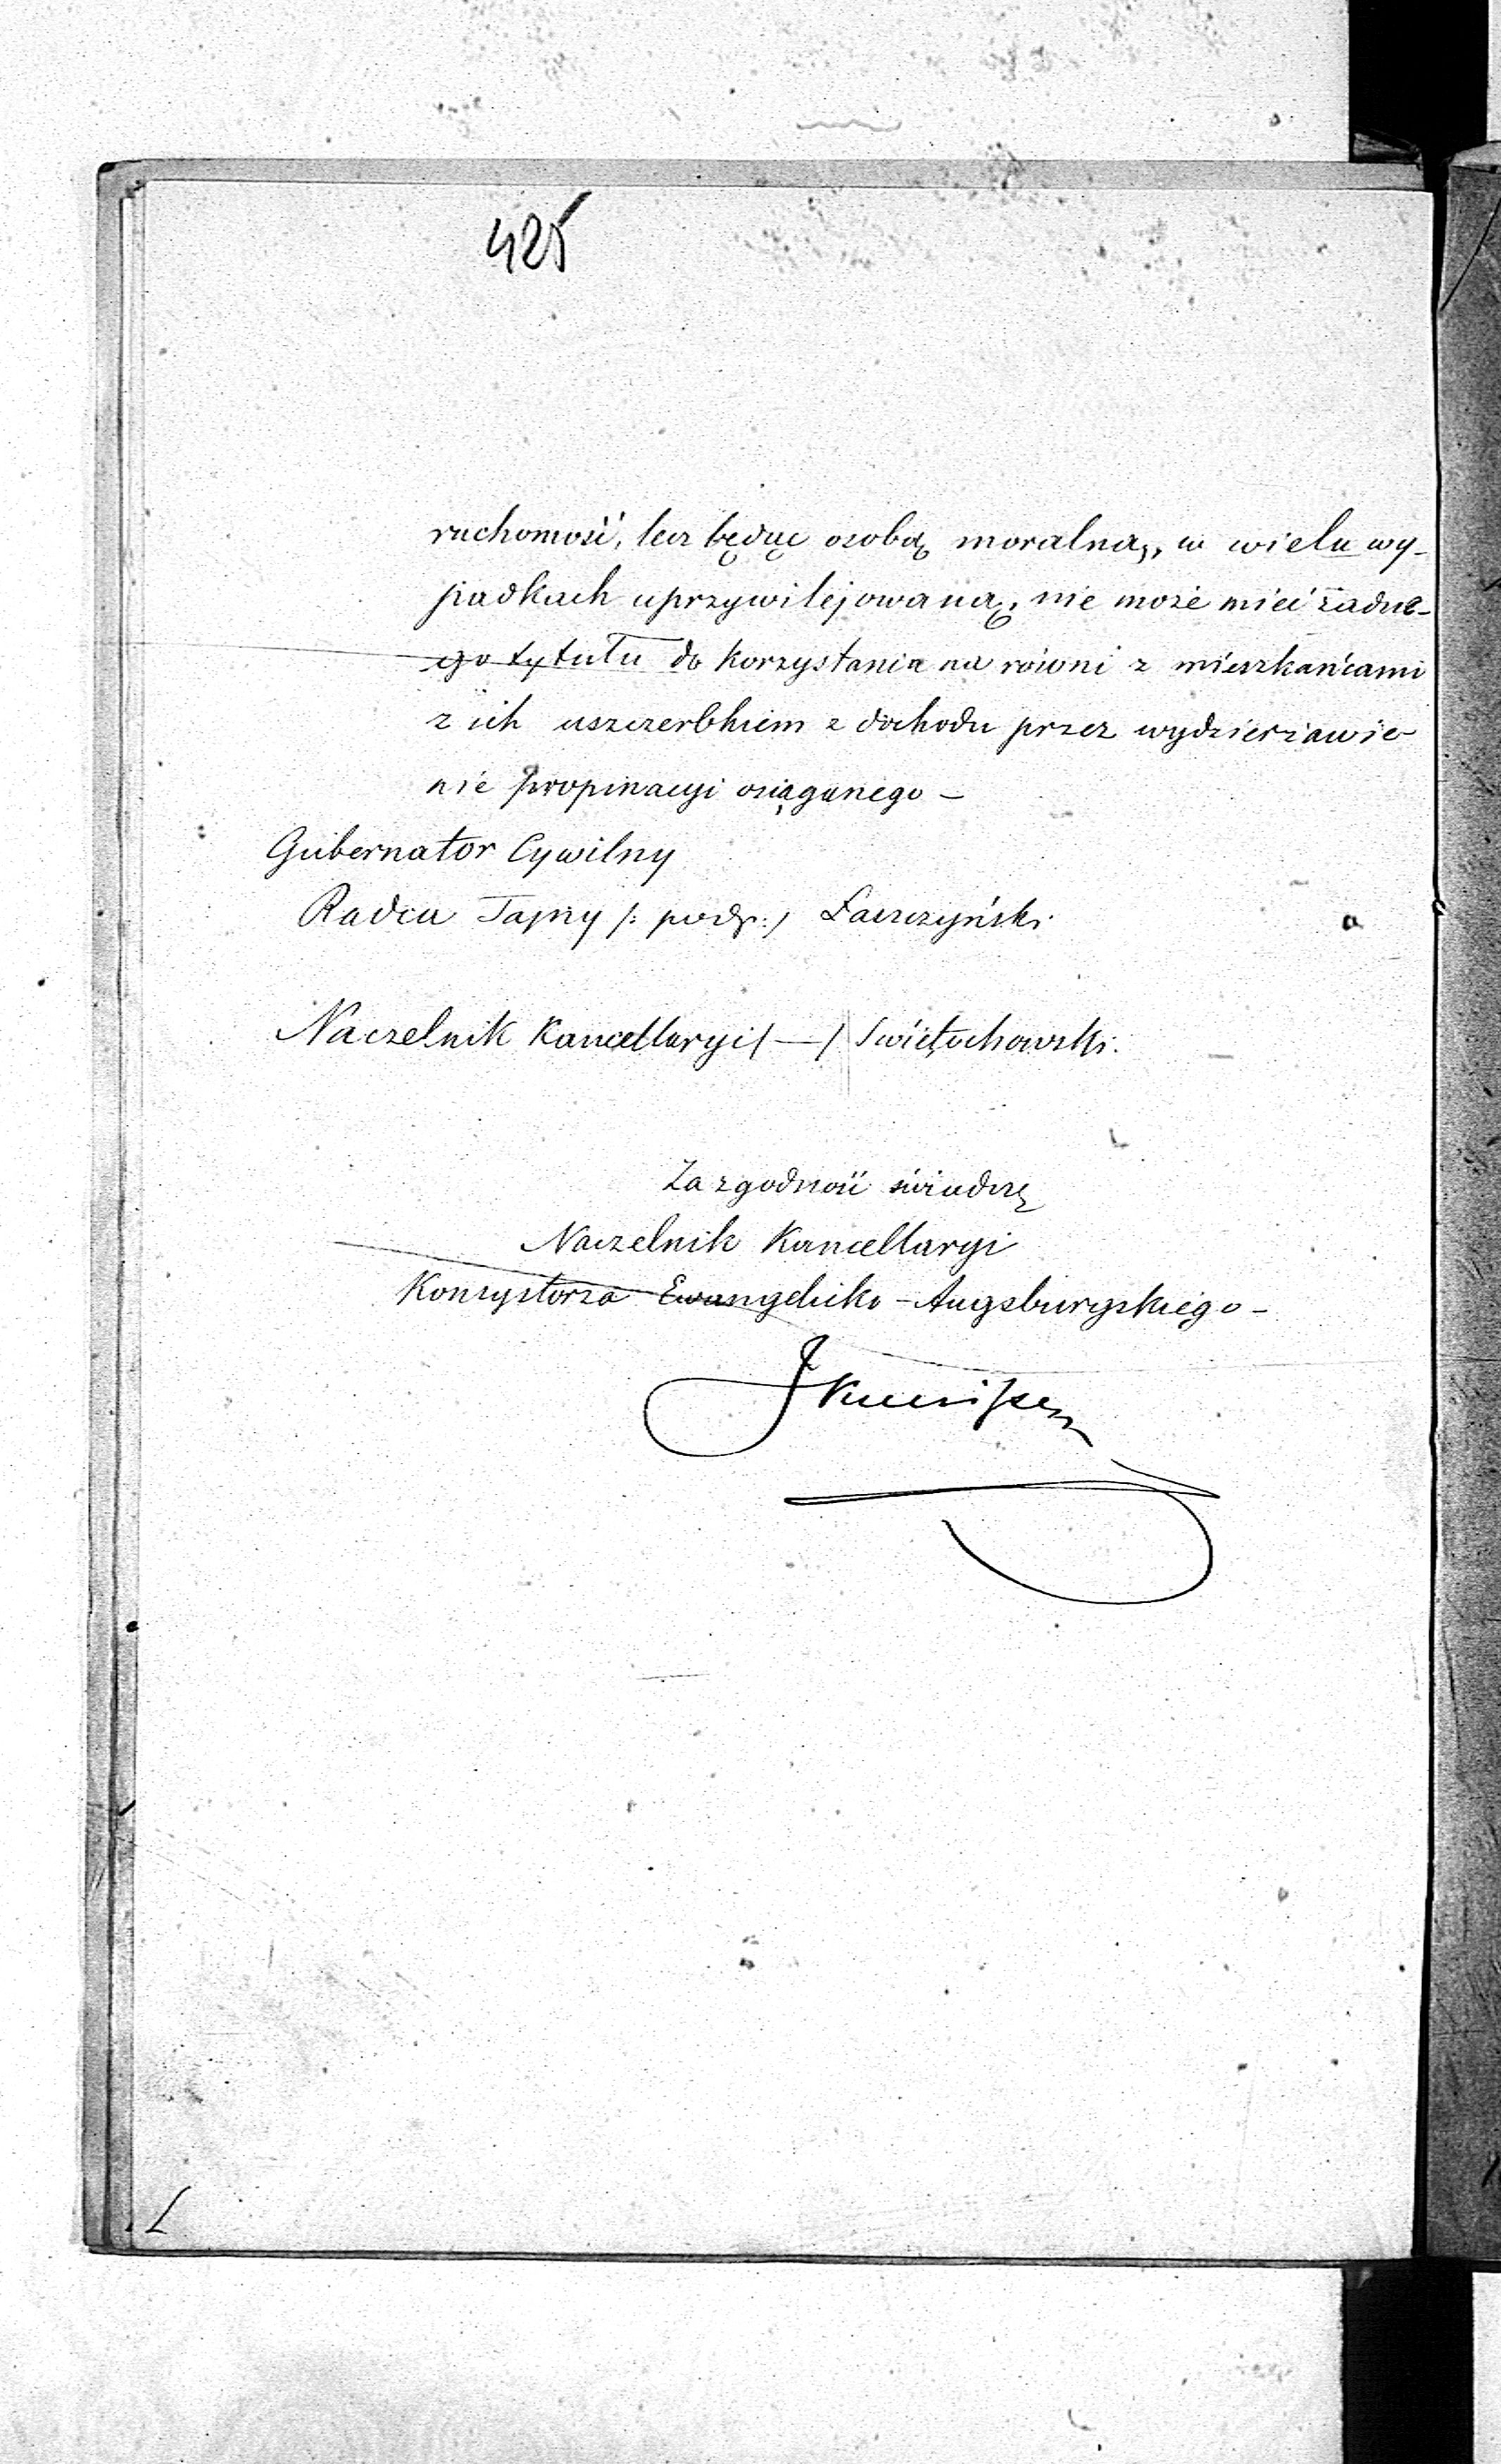 425
ruchomość, lecz będąc osobą moralną, w wielu wy-
padkach uprzywilejowaną, nie może mieć żadne-
go tytułu do korzystania na równi z mieszkańcami
z ich uszczerbkiem z dochodu przez wydzierżawie-
nie propinacyi osiąganego –
Gubernator Cywilny
Radca Tajny /: podp: / Łaszczyński
Naczelnik Kancellaryi /—/ Świętochowski.
Za zgodność świadczę
Naczelnik Kancellaryi
Konsystorza Ewangelicko-Augsburgskiego –